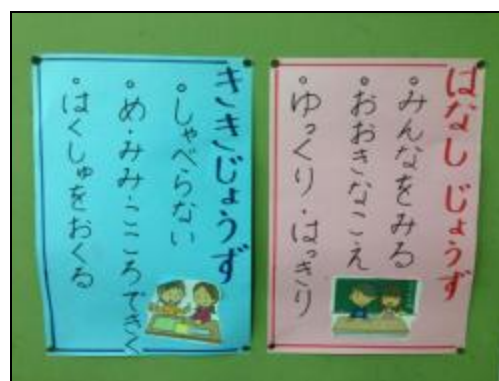 はなしじょうず
°みんなをみる
°おおきなこえ
°ゆっくり・はっきり
ききじょうず
°しゃべらない
°め・みみ・こころできく
°はくしゅをおくる